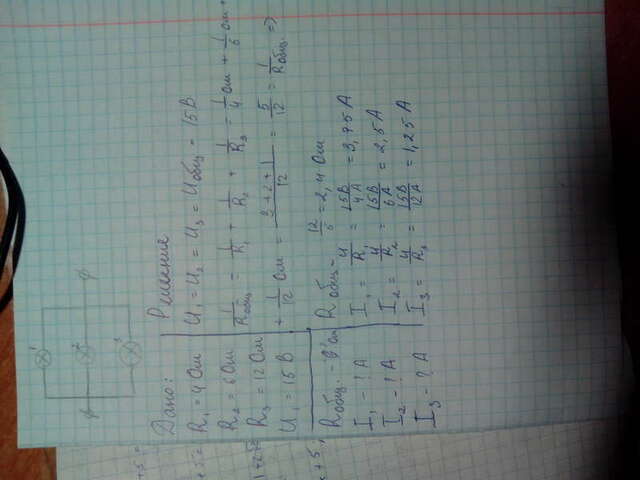 Дано:
R₁ = 4 Ом
R₂ = 6 Ом
R₃ = 12 Ом
U₁ = 15 В
Rобщ. - ? Ом
I₁ - ? А
I₂ - ? А
I₃ - ? А
Решение
U₁ = U₂ = U₃ = Uобщ = 15 В
1/Rобщ = 1/R₁ + 1/R₂ + 1/R₃ = 1/4 Ом + 1/6 Ом +
+ 1/12 Ом = (3 + 2 + 1)/12 = 5/12 = 1/Rобщ. =>
Rобщ = 12/5 = 2,4 Ом
I₁ = U/R₁ = 15В/4А = 3,75 А
I₂ = U/R₂ = 15В/6А = 2,5 А
I₃ = U/R₃ = 15В/12А = 1,25 А
1
2
3